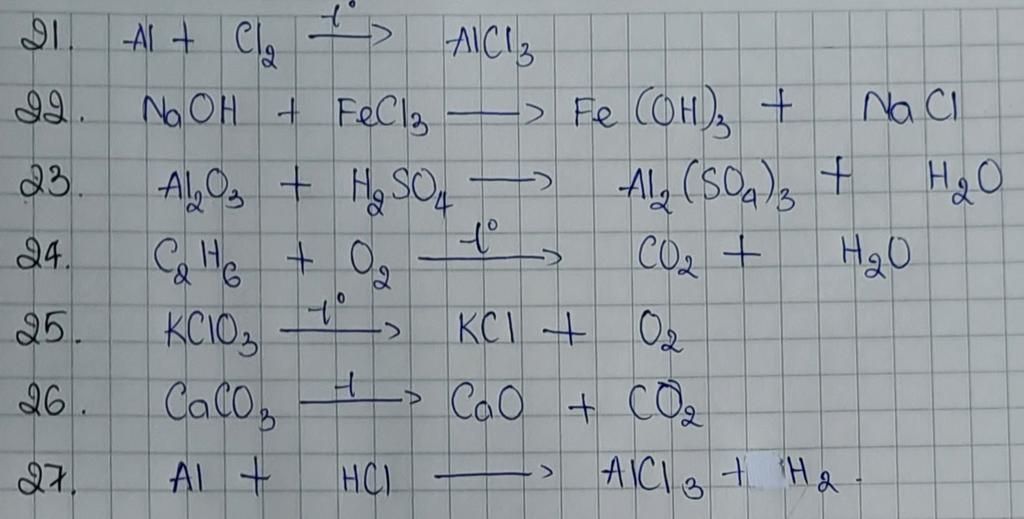 21. Al + Cl₂ —t°→ AlCl₃
22. NaOH + FeCl₃ → Fe(OH)₃ + NaCl
23. Al₂O₃ + H₂SO₄ → Al₂(SO₄)₃ + H₂O
24. C₂H₆ + O₂ —t°→ CO₂ + H₂O
25. KClO₃ —t°→ KCl + O₂
26. CaCO₃ —t→ CaO + CO₂
27. Al + HCl → AlCl₃ + H₂.